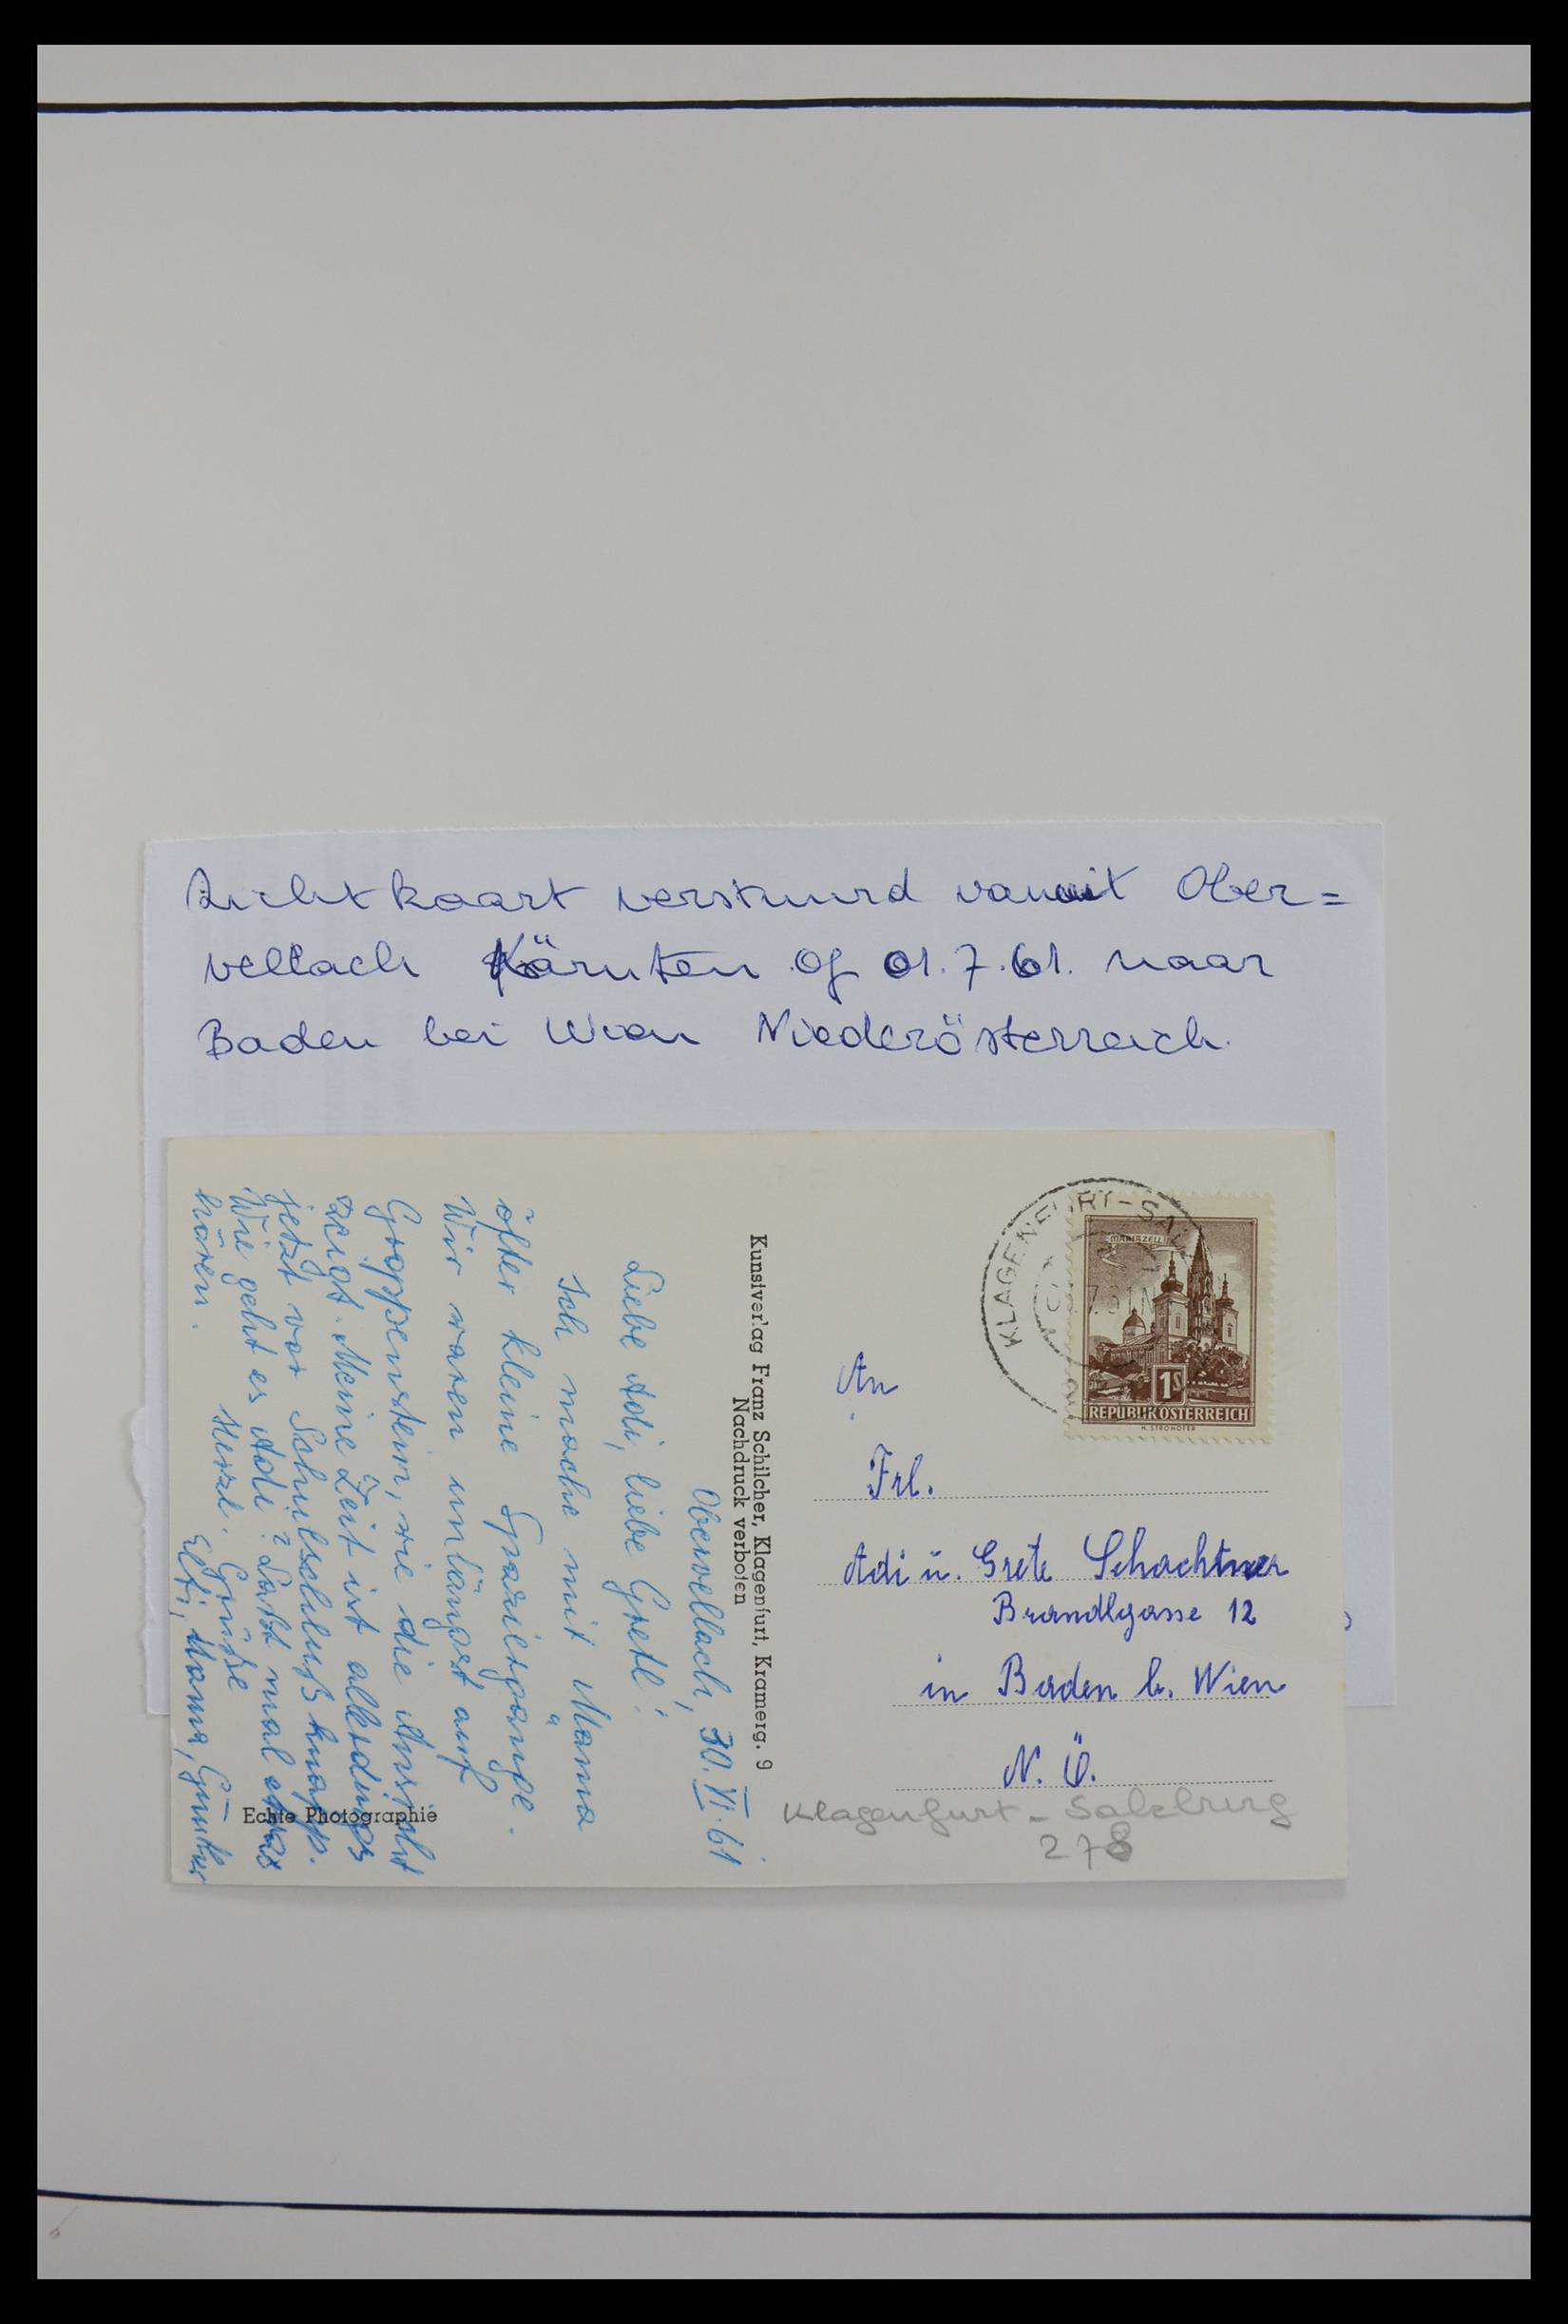 Zichtkaart verstuurd vanuit Ober=
vellach Kärnten op 01.7.61. naar
Baden bei Wien Niederösterreich.
KLAGENFURT-SAL
7.61
MARIAZELL
1S
REPUBLIK ÖSTERREICH
H. STROHOFER
An
Frl.
Adi u. Grete Schachtner
Brandlgasse 12
in Baden b. Wien
N. Ö.
Klagenfurt - Salzburg
278
Kunstverlag Franz Schilcher, Klagenfurt, Kramerg. 9
Nachdruck verboten
Obervellach, 30. VI. 61
Liebe Adi, liebe Gretl!
Ich mache mit Mama
öfter kleine Spaziergänge.
Wir waren unlängst auf
Groppenstein, wie die Ansicht
zeigt. Meine Zeit ist allerdings
jetzt vor Schulschluß knapp.
Wie geht es Adi? Laßt mal etwas
hören.
Herzl. Grüße
Mama, Günther
Echte Photographie